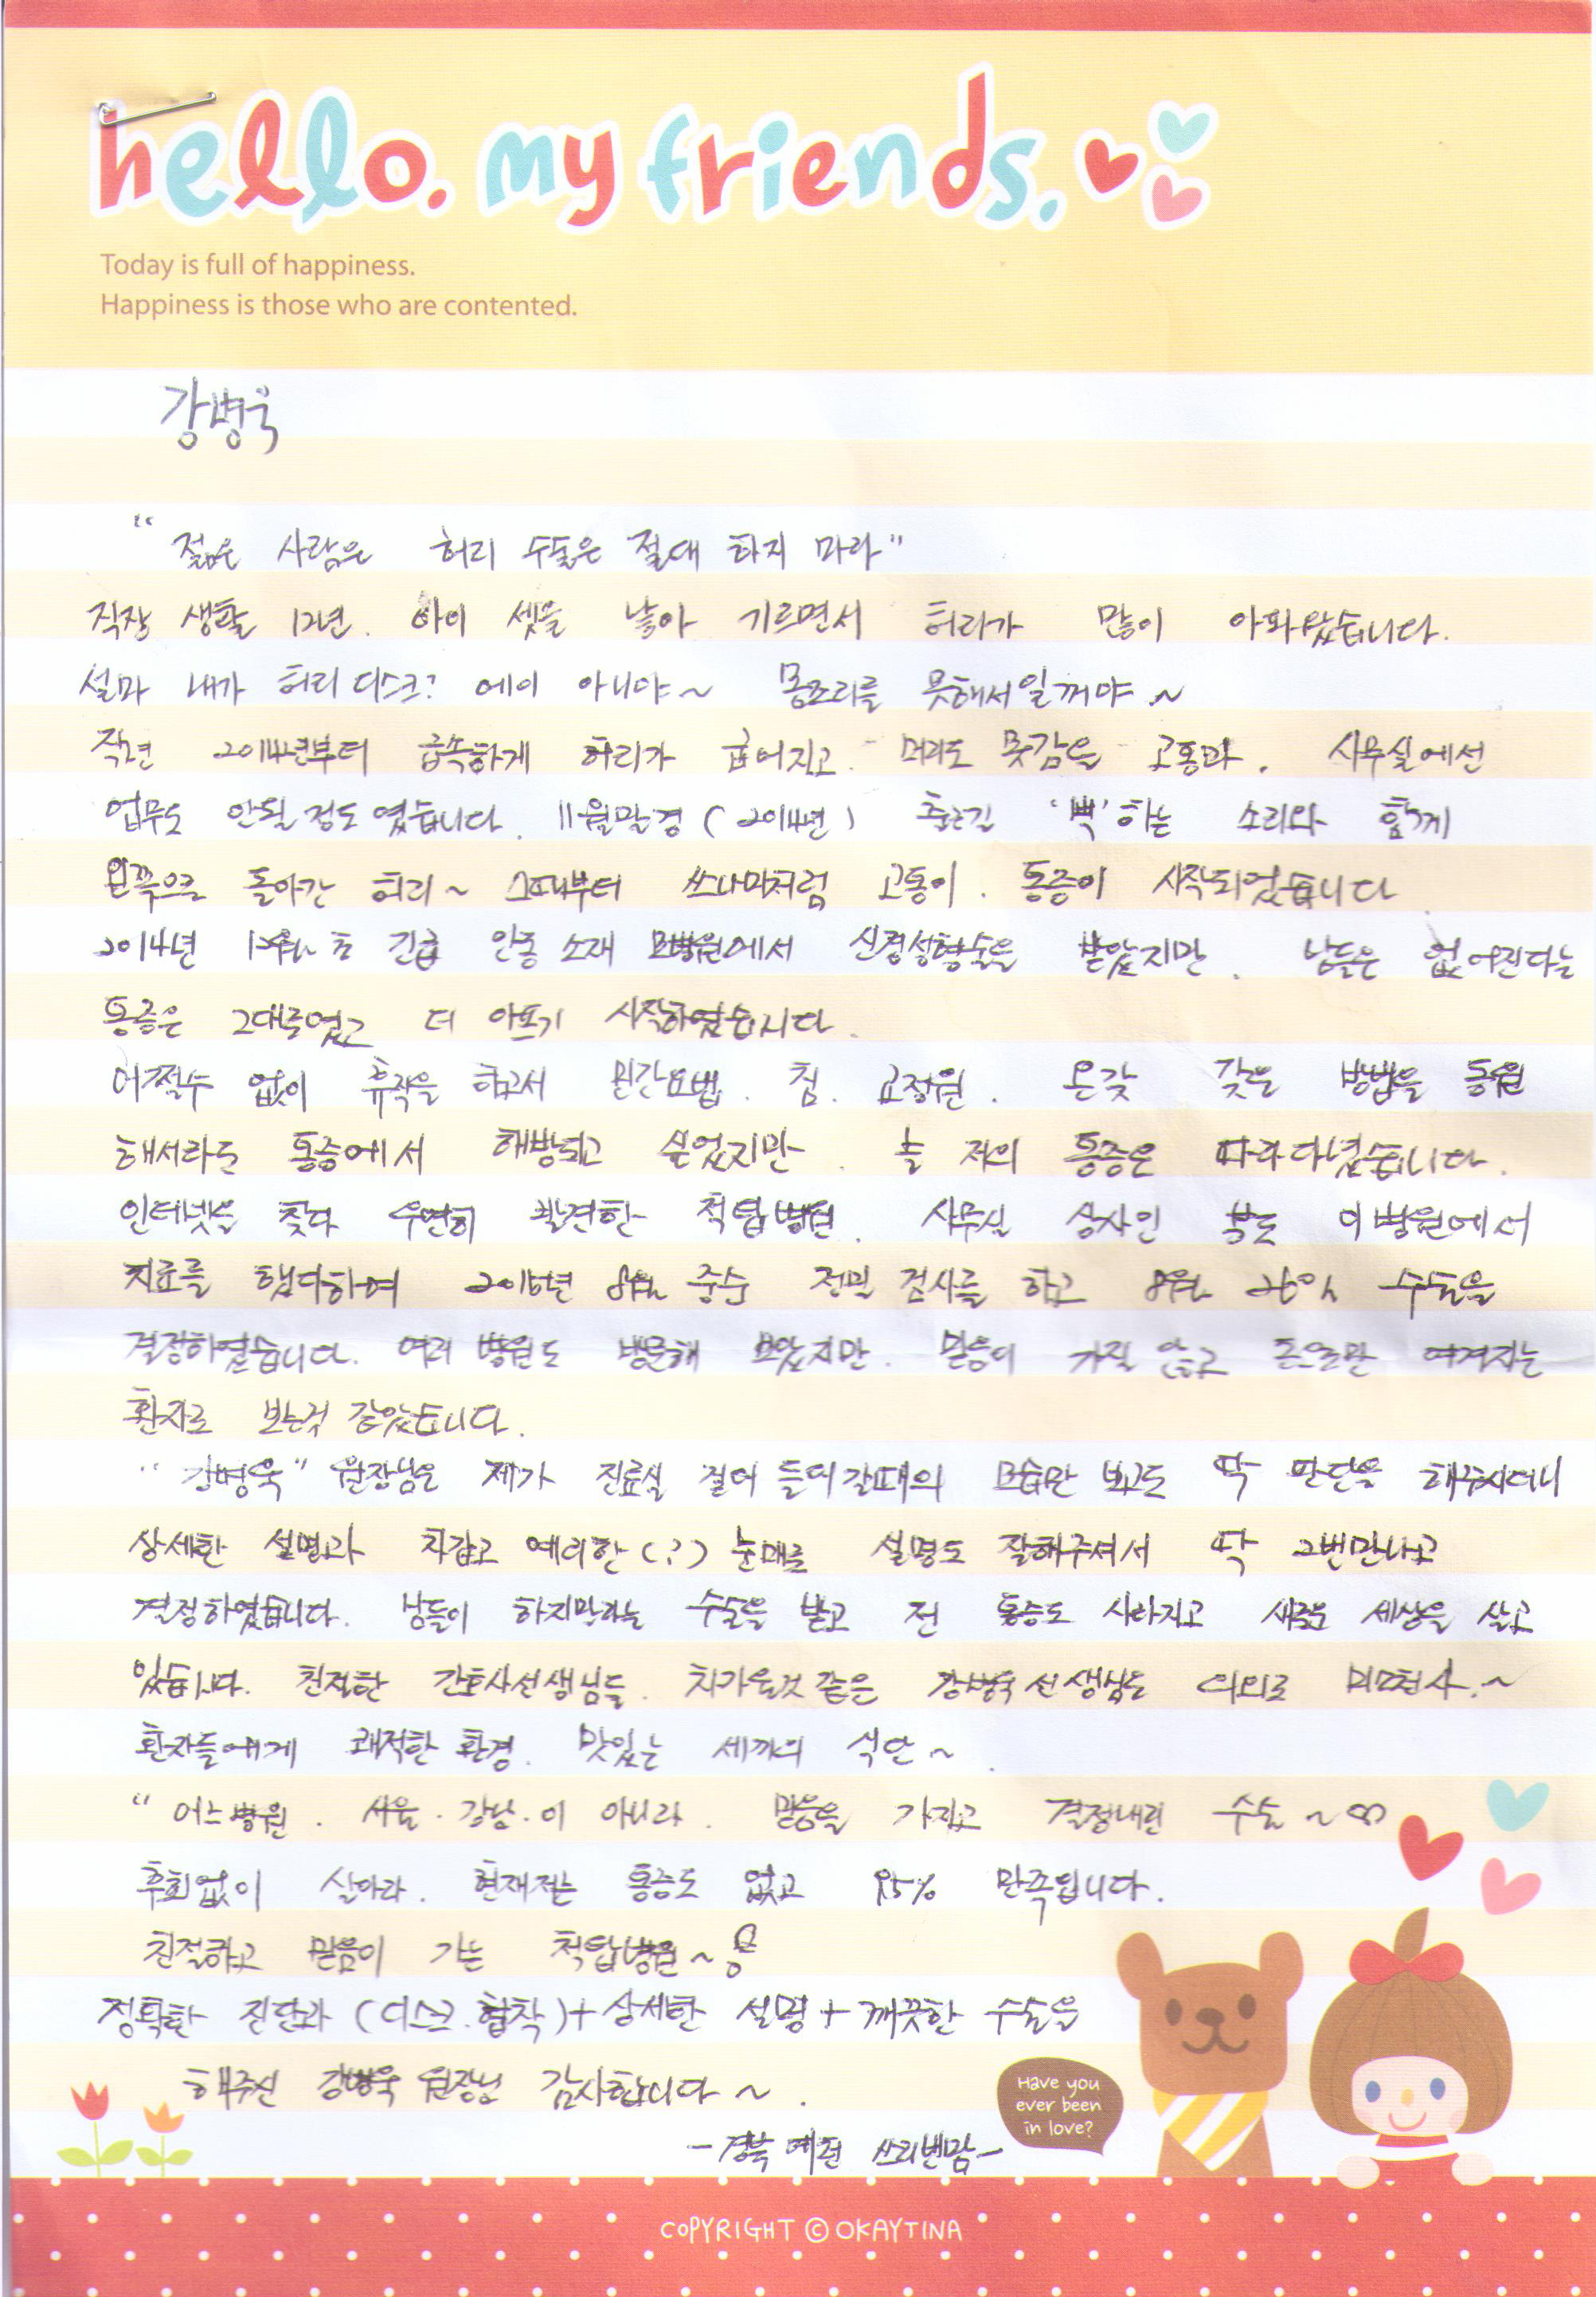 hello. my friends.
Today is full of happiness.
Happiness is those who are contented.
강병욱
"젊은 사람은 허리 수술은 절대 하지 마라"
직장 생활 12년. 아이 셋을 낳아 기르면서 허리가 많이 아파왔습니다.
설마 내가 허리 디스크? 에이 아니야~ 몸조리를 못해서일꺼야.~
작년 2014년부터 급속하게 허리가 굽어지고. 머리도 못감을 고통과. 사무실에선
업무도 안될 정도였습니다. 11월말경 (2014년) 출근길 '뻑'하는 소리와 함께
왼쪽으로 돌아간 허리~ 그때부터 쓰나미처럼 고통이. 통증이 시작되었습니다
2014년 12월 초 긴급 안동 소재 모병원에서 신경성형술을 받았지만. 남들은 없어진다는
통증은 그대로였고 더 아프기 시작하였습니다.
어쩔수 없이 휴직을 하고서 민간요법. 침. 교정원. 온갖 갖은 방법을 동원
해서라도 통증에서 해방되고 싶었지만. 늘 저의 통증은 따라다녔습니다.
인터넷을 찾다 우연히 발견한 척탑병원. 사무실 상사인 분도 이 병원에서
치료를 했다하여 2015년 8월 중순 정밀 검사를 하고 8월 26일 수술을
결정하였습니다. 여러 병원도 방문해 보았지만. 믿음이 가질 않고 돈으로만 여겨지는
환자로 보는것 같았습니다.
"강병욱" 원장님은 제가 진료실 걸어 들어갈때의 모습만 보고도 딱 판단을 해주시더니
상세한 설명과 차갑고 예리한(?) 눈매로 설명도 잘해주셔서 딱 2번만나고
결정하였습니다. 남들이 하지말라는 수술을 받고 전 통증도 사라지고 새로운 세상을 살고
있습니다. 친절한 간호사선생님들. 차가울것 같은 강병욱 선생님도 의외로 미소천사.~
환자들에게 쾌적한 환경. 맛있는 세끼의 식단~.
"어느병원. 서울.강남.이 아니라. 믿음을 가지고 결정내린 수술~
후회없이 살아라. 현재저는 통증도 없고 95% 만족됩니다.
친절하고 믿음이 가는 척탑병원~
정확한 진단과 (디스크.협착)+상세한 설명+깨끗한 수술을
해주신 강병욱 원장님 감사합니다~.
-경북 예천 쓰리벤맘-
Have you
ever been
in love?
COPYRIGHT © OKAYTINA